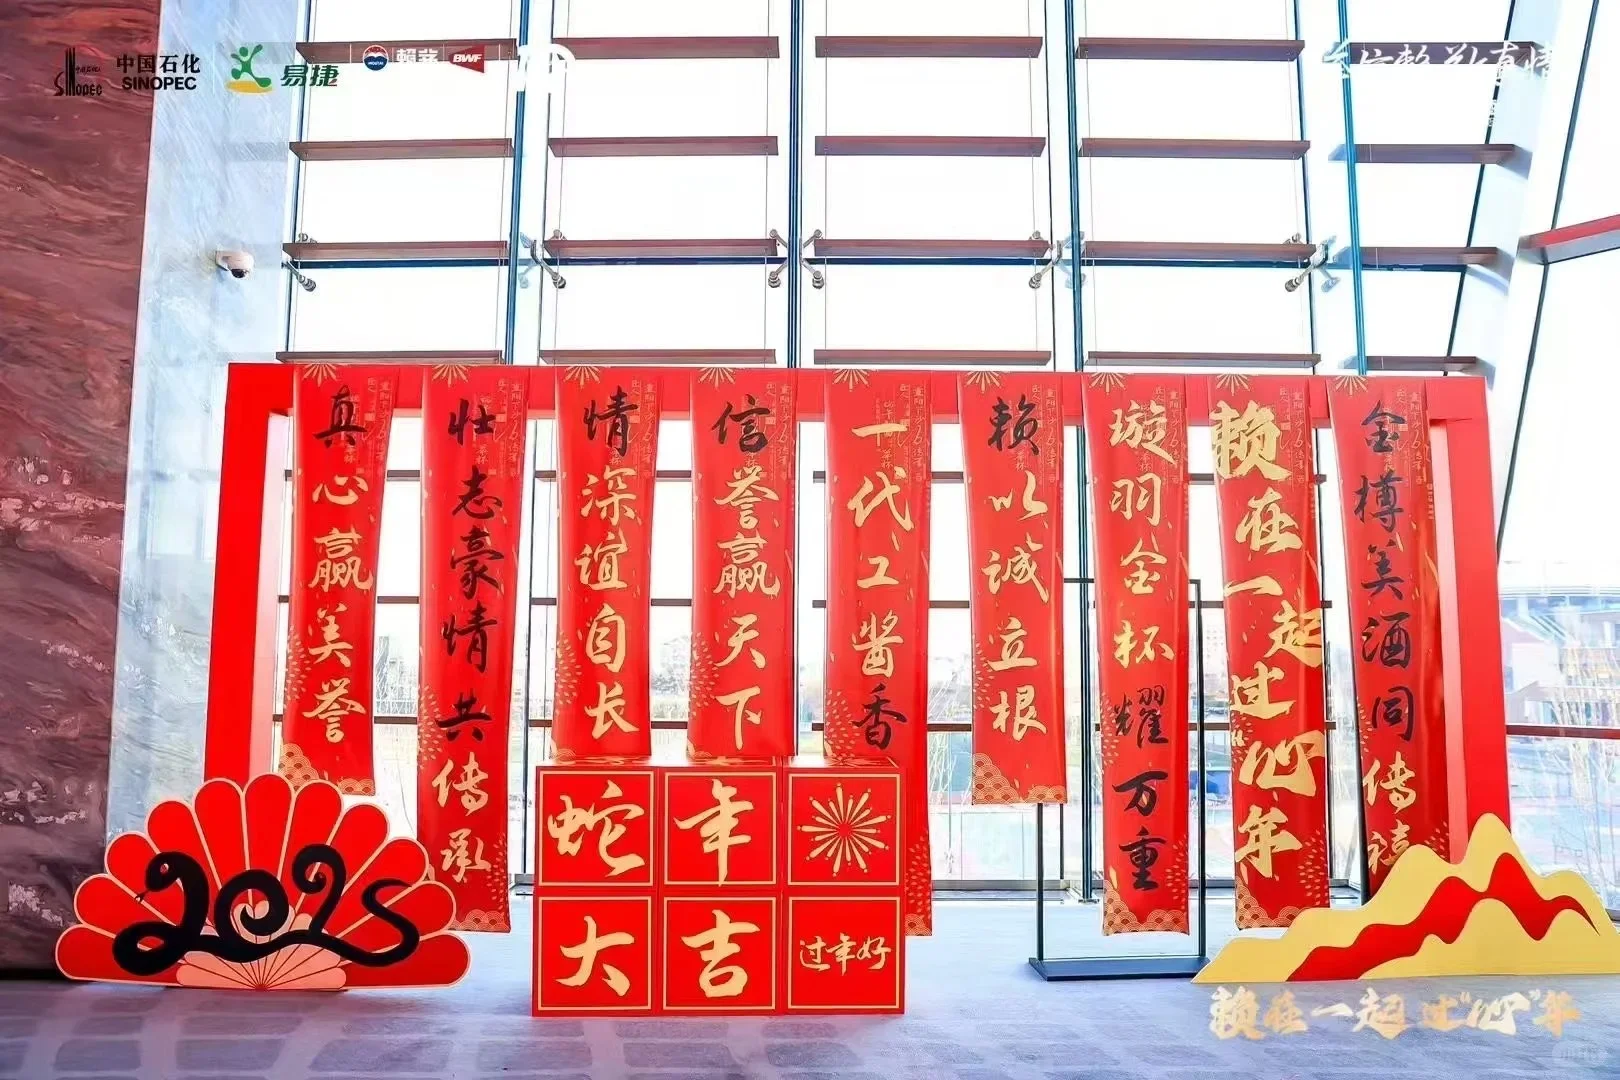 中国石化
SINOPEC
Sinopec
易捷
MOUTAI
賴茆
BWF
真心赢美誉
壮志豪情共传承
情深谊自长
信誉赢天下
一代工酱香
赖以诚立根
璇羽金杯耀万重
赖在一起过心年
金樽美酒同传禧
蛇年
大吉
过年好
2025
赖在一起过“心”年